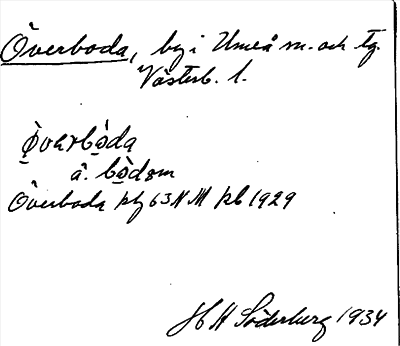 Överboda, by i Umeå sn. och tg.
Västerb. l.
ø̀vərbò̱da
ä. bò̱dəm
Överboda ktg 63 N M kb 1929
H H Söderberg 1934